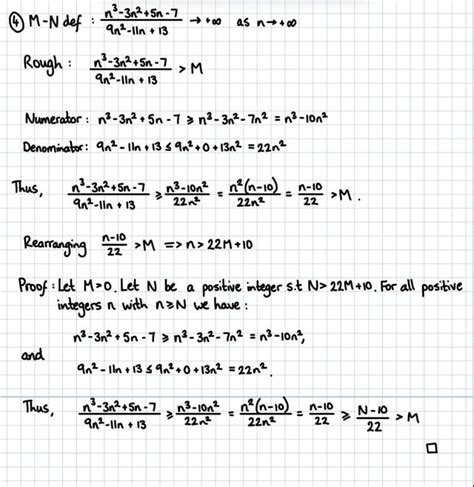 ④ M-N def : (n³-3n²+5n-7)/(9n²-11n+13) → +∞ as n→+∞
Rough : (n³-3n²+5n-7)/(9n²-11n+13) > M
Numerator : n³-3n²+5n-7 ⩾ n³-3n²-7n² = n³-10n²
Denominator: 9n²-11n+13 ≤ 9n²+0+13n² = 22n²
Thus, (n³-3n²+5n-7)/(9n²-11n+13) ⩾ (n³-10n²)/(22n²) = (n²(n-10))/(22n²) = (n-10)/22 > M.
Rearranging (n-10)/22 > M => n > 22M+10
Proof : Let M>0. Let N be a positive integer s.t N> 22M+10. For all positive
integers n with n⩾N we have :
n³-3n²+5n-7 ⩾ n³-3n²-7n² = n³-10n²,
and
9n²-11n+13 ≤ 9n²+0+13n² = 22n².
Thus, (n³-3n²+5n-7)/(9n²-11n+13) ⩾ (n³-10n²)/(22n²) = (n²(n-10))/(22n²) = (n-10)/22 ⩾ (N-10)/22 > M
□